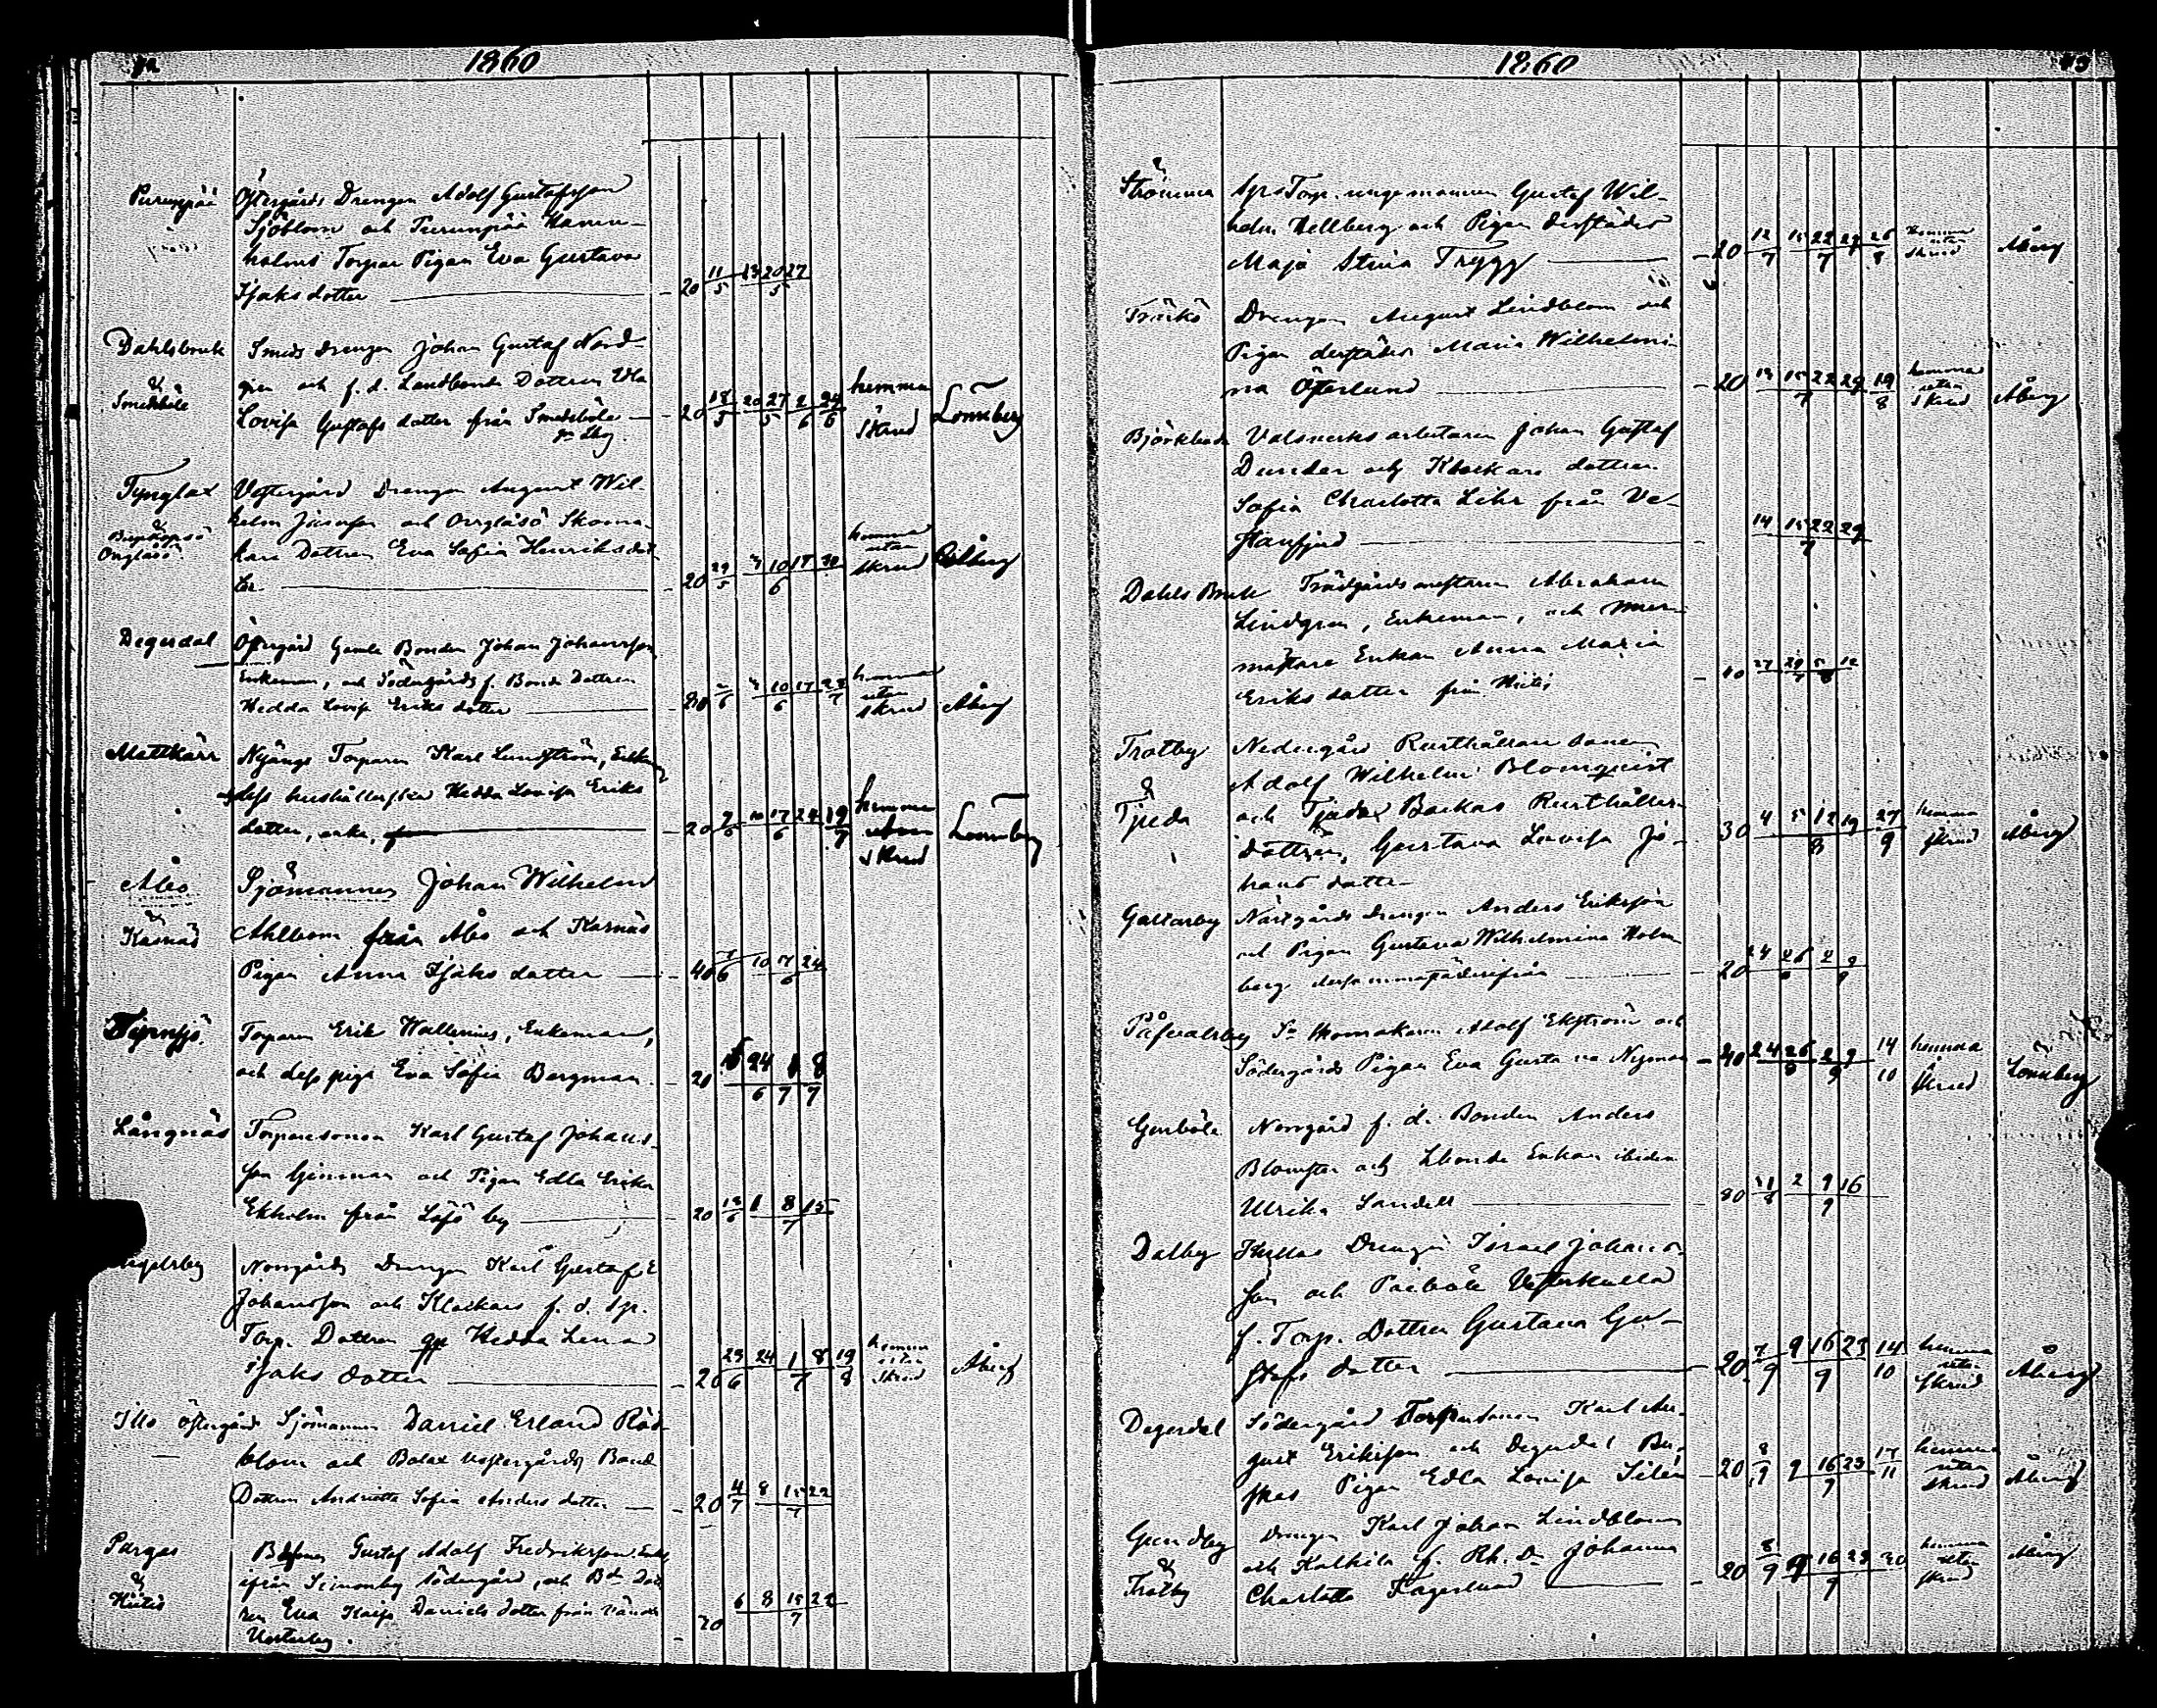 1860
Purunpää Östergårds Drengen Adolf Gustafsson
Sjöblom och Purunpää Hamn-
holms Torpar Pigan Eva Gustava
Isaks dotter 20 11/5 13 20 27/5
Dahlsbruk Smeds drengen Johan Gustaf Nord-
gren och f. d. Landbonde Dottren Ulla
& Smedsböle Lovisa Gustafs dotter från Smedsböle 20 18/5 20 27/5 2/6 24/6 hemma Skrud Lönnberg
Tynglax Vestergård Drengen August Wil-
helm Jansson och Ornglåsö Skoma-
& Biskopsö Ornglåsö kare Dottren Eva Sofia Henriksdot-
ter 20 29/5 3 10 17/6 hemma utan skrud Åberg
Degerdal Östergård Gamle Bonden Johan Johansson
Enkeman, och Södergårds f. Bonde Dottren
Hedda Lovisa Eriks dotter 20 2/6 3 10 17/6 hemma utan skrud Åberg
Mattkärr Nyängs Torparen Karl Lundström, Enkem
dess hushållerska Hedda Lovisa Eriks
dotter, enka, 20 7/6 10 17 24/6 19/7 hemma utan skrud Lönnberg
Åbo Sjömannen Johan Wilhelm
& Kasnäs Ahlbom från Åbo och Kasnäs
Pigan Anna Isaks dotter 40 7/6 10 17 24/6
Torparen Erik Wallenius, Enkeman,
och dess piga Eva Sofia Bergman 20 24/6 1/7 8/7
Långnäs Torparesonen Karl Gustaf Johans-
son Ginman och Pigan Edla Erika
Ekholm från Löfö by 20 1 8 15/7
Norrgårds Drengen Karl Gustaf
Johansson och Klockars f. d.
Torp. Dottren Hedda Lena
Isaks dotter 20 23/6 24 1 8/7 19/8 hemma utan skrud Åberg
Illo Östergårds Sjömannen Daniel Erland Röd-
blom och Bolax Westergårds Bonde
Dottren Andrietta Sofia Anders dotter 20 4/7 8 15 22/7
Pargas Gustaf Adolf Fredriksson
ifrån Simonby Södergård, och
& Hitis Eva Kaisa Daniels dotter från Vänö
Westerby. 20 6 8 15 22/7
1860
Strömma Torp. ungemannen Gustaf Wil-
helm Hellberg och Pigan derstädes
Maja Stina Trygg 20 12/7 15 22 29/7 26/8 hemma utan skrud Åberg
Träskö Drengen August Lindblom och
Pigan derstädes Maria Wilhelmi-
na Österlund 20 15 22 29/7 19/8 hemma utan skrud Åberg
Björkboda Valsverks arbetaren Johan Gustaf
Dunder och Klockare dottren
Sofia Charlotta Lihr från Ve-
stanfjerd 14 15 22 29/7
Dahls Bruk Trädgårdsmästaren Abraham
Lindgren, Enkeman, och Mur-
mästare Enkan Anna Maria
Eriks dotter från Hitis 27 29/7 5 12/8
Trotby Nedergård Rusthållare sonen
Adolf Wilhelm Blomqvist
& Tjuda och Tjudax Backas Rusthållar
dottren, Gustava Lovisa Jo-
hans dotter 30 4 5 12 19/8 27/9 hemma skrud Åberg
Galtarby Norrgårds drengen Anders Eriksson
och Pigan Gustava Wilhelmina Holm-
berg dersammastädesifrån 20 24 26/8 2 9/9
Påfvalsby Skomakaren Adolf Ekström och
Södergårds Pigan Eva Gustava Nyman 40 24 26/8 2 9/9 14/10 hemma skrud Lönnberg
Genböle Norrgård f. d. Bonden Anders
Blomster och Lbonde Enkan ibidem
Ulrika Sandell 2 9 16/9
Dalby Kullas Drengen Israel Johans-
son och Påeböle Westerkulla
f. Torp. Dottren Gustava Gu-
stafs dotter 20 7/9 9 16 23/9 14/10 hemma utan skrud Åberg
Degerdal Södergård Torparesonen Karl Au-
gust Eriksson och Degerdal Bu-
skas Pigan Edla Lovisa Silén 20 8/9 9 16 23/9 17/11 hemma utan skrud Åberg
Gundby Drengen Karl Johan Lindblom
& Trotby och Kalkila f. Rh. Dr Johanna
Charlotta Fagerlund 20 8/9 9 16 23/9 hemma utan skrud Åberg